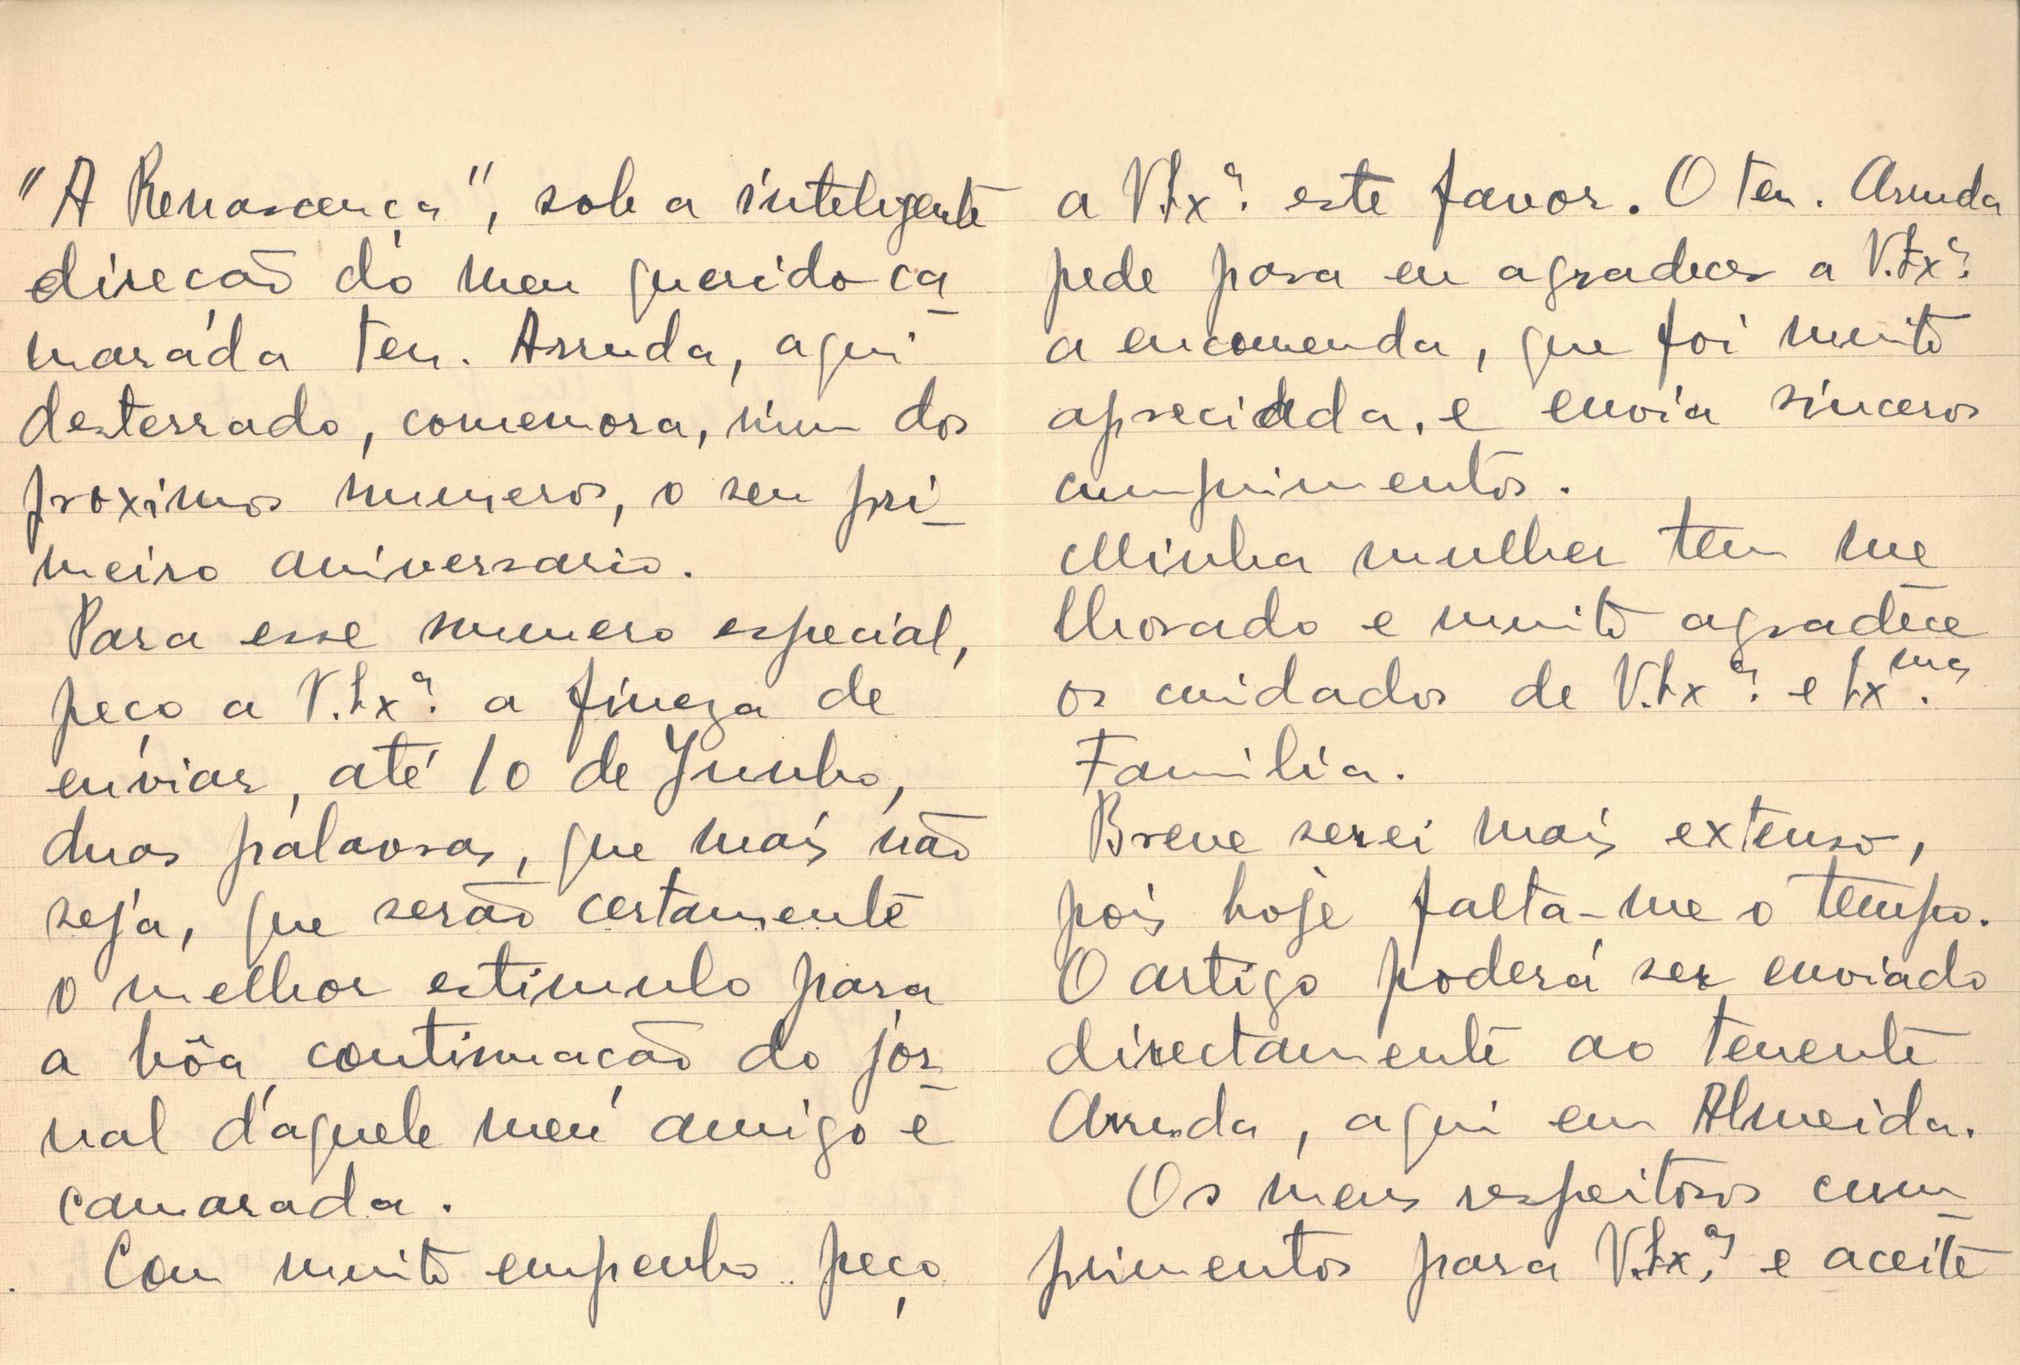 "A Renascença", sob a inteligente
direcão do meu querido ca-
marada ten. Arruda, aqui
desterrado, comemora, num dos
proximos numeros, o seu pri-
meiro aniversario.
Para esse numero especial,
peço a V. Exª. a fineza de
enviar, até 10 de Junho,
duas palavras, que mais não
seja, que serão certamente
o melhor estimulo para
a bôa continuação do jor-
nal d'aquele meu amigo e
camarada.
Com muito empenho peço
a V. Exª. este favor. O ten. Arruda
pede para eu agradecer a V. Exª.
a encomenda, que foi muito
apreciada, e envia sinceros
cumprimentos.
Minha mulher tem me
lhorado e muito agradece
os cuidados de V. Exª. e Exma.
Familia.
Breve serei mais extenso,
pois hoje falta-me o tempo.
O artigo poderá ser enviado
directamente ao tenente
Arruda, aqui em Almeida.
Os meus respeitosos cum-
primentos para V. Exas e aceite